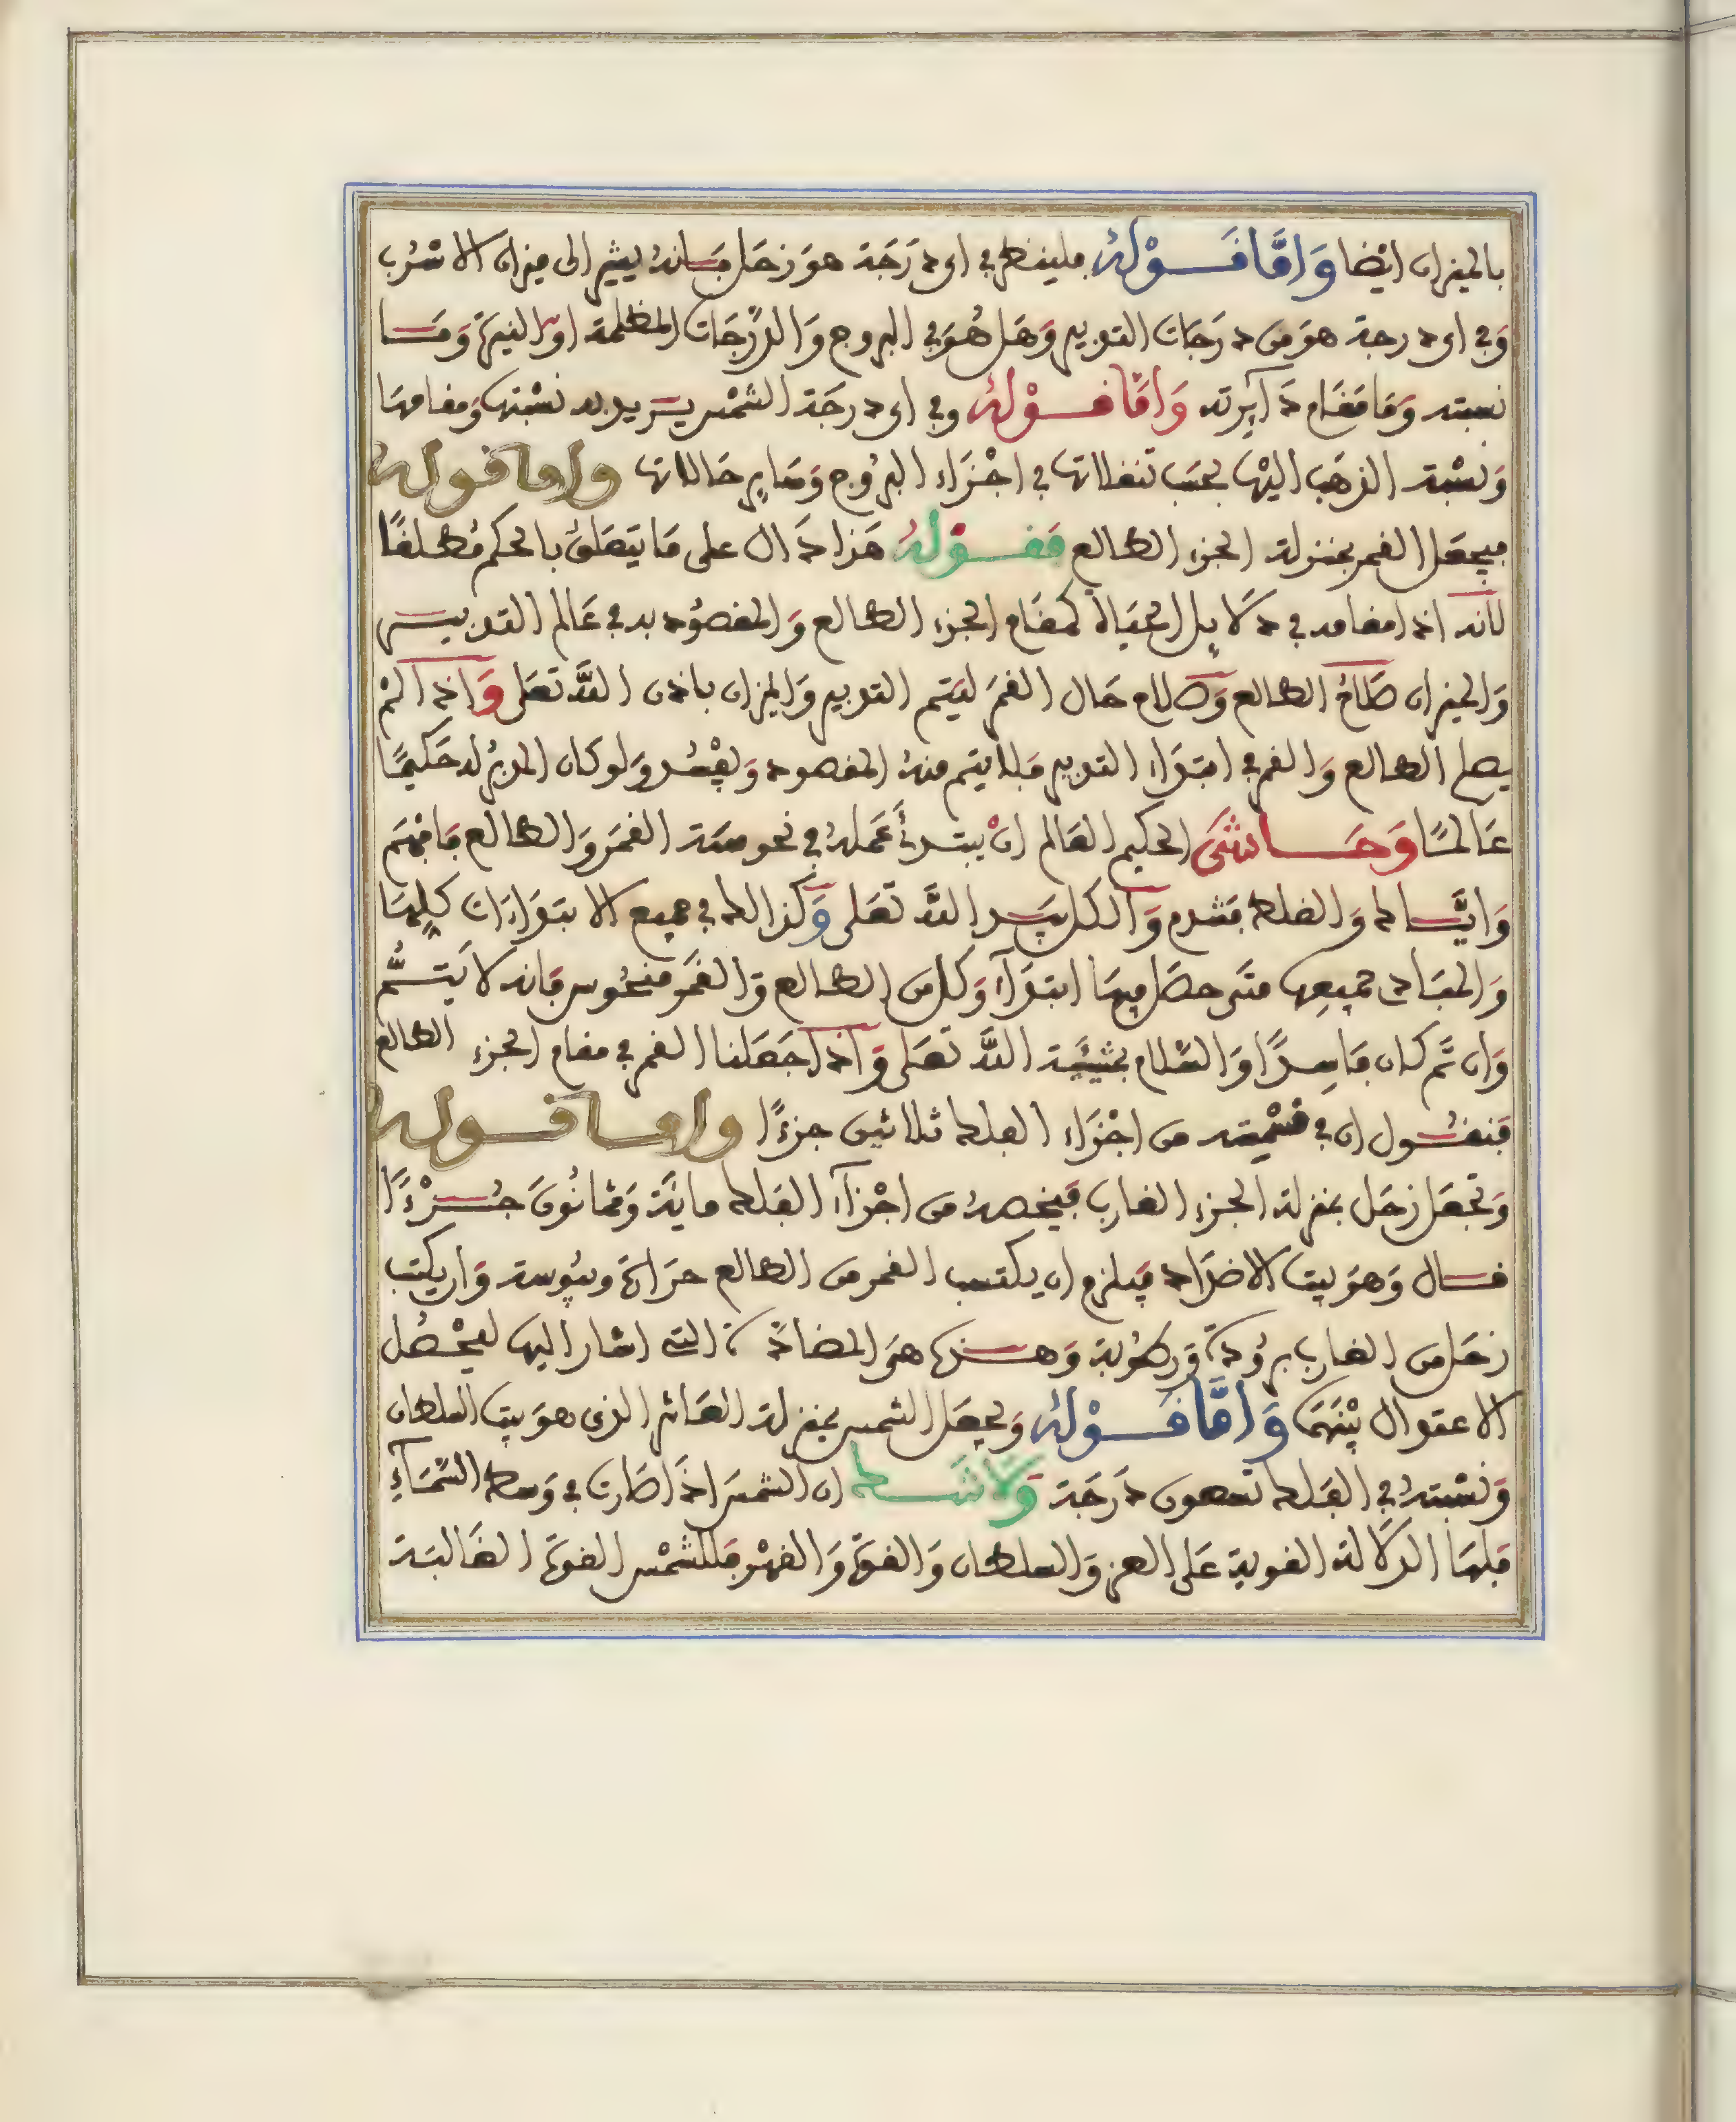 بالميزان ايضا وَامَّا قَوْلُهُ فلينظر في اي دَرَجَة هوَ زحَل فَانهُ يشير الى ميزان الاسْرُب
وَفي اي درجة هوَ من دَرَجَات التدبير وَهَل هُوَ في البروج وَالدَّرَجَات المظلمة او النيرَة وَمَا
نسبته وَمَا مَقَام دَآيرته وَامَّا قَوْلُهُ وفي اي درجَة الشمْس يريد به نسْبتها وَمقامهَا
وَنسْبة الذهَب اليْها بحَسَب تنقلاتها في اجْزَاء البرُوج وَسَاير حَالاتها واما قوله
فيجعَل القمر بمنزلة الجزء الطالع فقوْلهُ هَذا دَال على مَا يتعَلقُ بالحكم مُطلقًا
لانه اذا مقامه في دَلايل الحيَاة كمقَام الجزء الطالع وَالمقصُود به في عَالم التدبير
وَالميزان صَلاحُ الطالع وَصلاح حَال القمَر ليَتم التدبير وَالميزان باذن اللَّه تعَلى وَاذا لمْ
يصلح الطالع وَالقمر في ابتدَاء التدبير فلا يتم منهُ المقصود وَيفْسُد وَلو كان المدبرُ له حَكيمًا
عَالمًا وَحَاشَى الحكيم العَالم انْ يبتدئَ عَملهُ في نحوسَة القمَر وَالطالع فَافهَم
وَايَّاك وَالغلط فتندم وَالكل بيَد اللَّه تعَلى وَكذالك في جميع الابتدَاءات كلِهَا
وَالمبَادي جميعِها متَى حصَل فيهَا ابتدَآء وَكل من الطالع وَالقَمَر منحُوس فَانه لا يَتمُّ
وَان تَم كان فَاسِدًا وَالسَّلام بمَشيئَة اللَّه تعَلى وَاذا جَعَلنا القمر في مقام الجزء الطالع
فَنقُول ان في قسْمِته من اجْزَاء الفلك ثلاثين جزءًا واما قوله
وَتجْعَل زحَل بمنزلة الجزء الغارب فيَخصهُ من اجْزآء الفَلك مايَة وَثمانُونَ جُزْءًا
قال وَهوَ بيت الاضدَاد فيَلزم ان يكتسب القمر من الطالع حرَارَة ويبُوسة وَان يكتب
زحَل من الغارب برُودَة وَرطُوبة وَهذه هيَ المضادَة التي اشار اليها ليَحْصُل
الاعتدال بيْنهَمَا وَامَّا قَوْلهُ وَيجعَل الشمس بمنزلة العَاشر الذي هوَ بيت السلطان
وَنسْبتهُ في الفَلك تسعون دَرَجَة وَلا شَك ان الشمسَ اذَا صَارت في وَسط السَّمَآءِ
فَلهَا الدلَالة القوية عَلى العز وَالسلطان وَالقوة وَالقهْر فَللشمْس القوة الغَالبَة